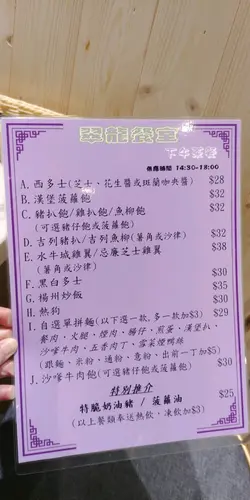 翠龍餐室
下午茶餐
供應時間 14:30-18:00
A. 西多士(芝士、花生醬或斑蘭咖央醬) $28
B. 漢堡菠蘿飽 $32
C. 豬扒飽/雞扒飽/魚柳飽 $32
(可選豬仔飽或菠蘿飽)
D. 吉列豬扒/吉列魚柳(薯角或沙律) $32
E. 水牛城雞翼/忌廉芝士雞翼 $38
(薯角或沙律)
F. 黑白多士 $
G. 楊州炒飯 $35
H. 熱狗 $30
I. 自選單拼麵(以下選一款,多一款加$3) $29
餐肉、火腿、煙肉、腸仔、煎蛋、漢堡扒、
沙嗲牛肉、五香肉丁、雪菜煙鴨絲
(跟麵、米粉、通粉、意粉、出前一丁加$5)
J. 沙嗲牛肉飽(可選豬仔飽或菠蘿飽) $30
特別推介
特脆奶油豬 / 菠蘿油 $25
(以上餐類奉送熱飲,凍飲加$3)